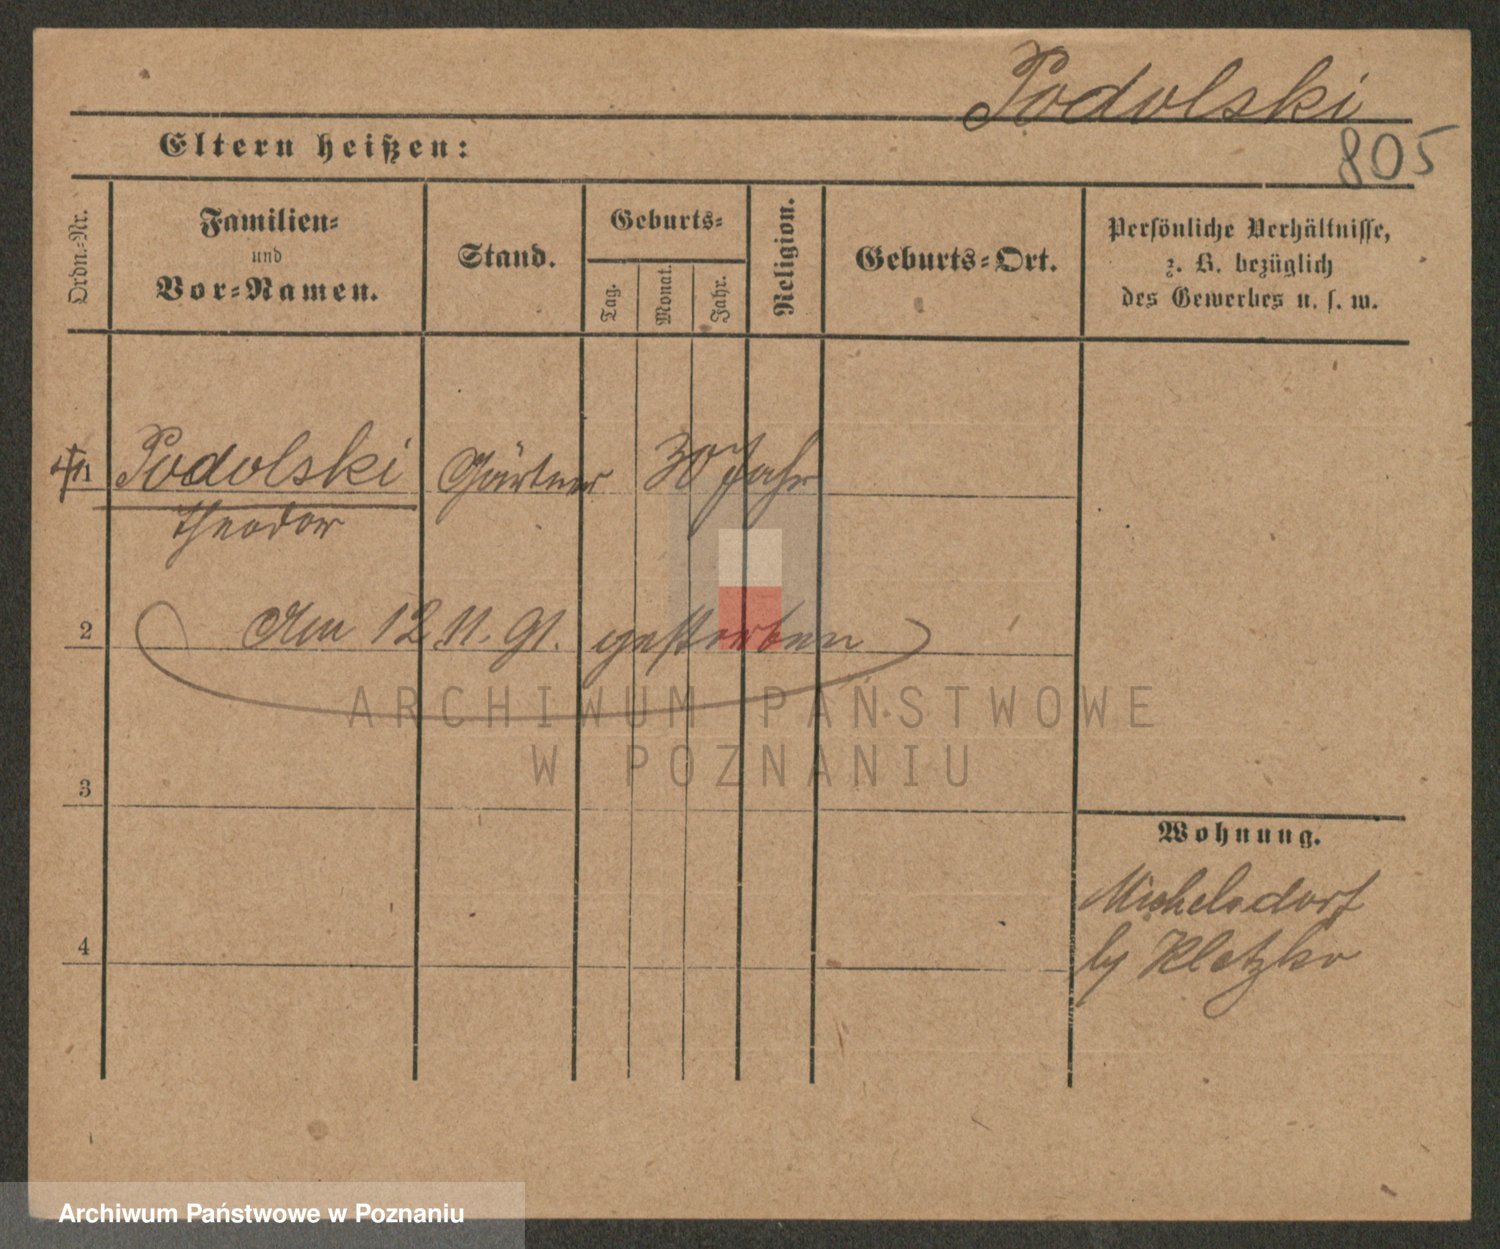 Podolski
805
Eltern heißen:
Ordn.=Nr.
Familien=
und
Vor=Namen.
Stand.
Geburts=
Tag.
Monat.
Jahr.
Religion.
Geburts=Ort.
Persönliche Verhältnisse,
z. B. bezüglich
des Gewerbes u. s. w.
1 Podolski Gärtner 30 Jahr
Theodor
2 Am 12 11. 91. gestorben
ARCHIWUM PAŃSTWOWE
W POZNANIU
3
Wohnung.
Michelsdorf
by Kletzko
4
Archiwum Państwowe w Poznaniu